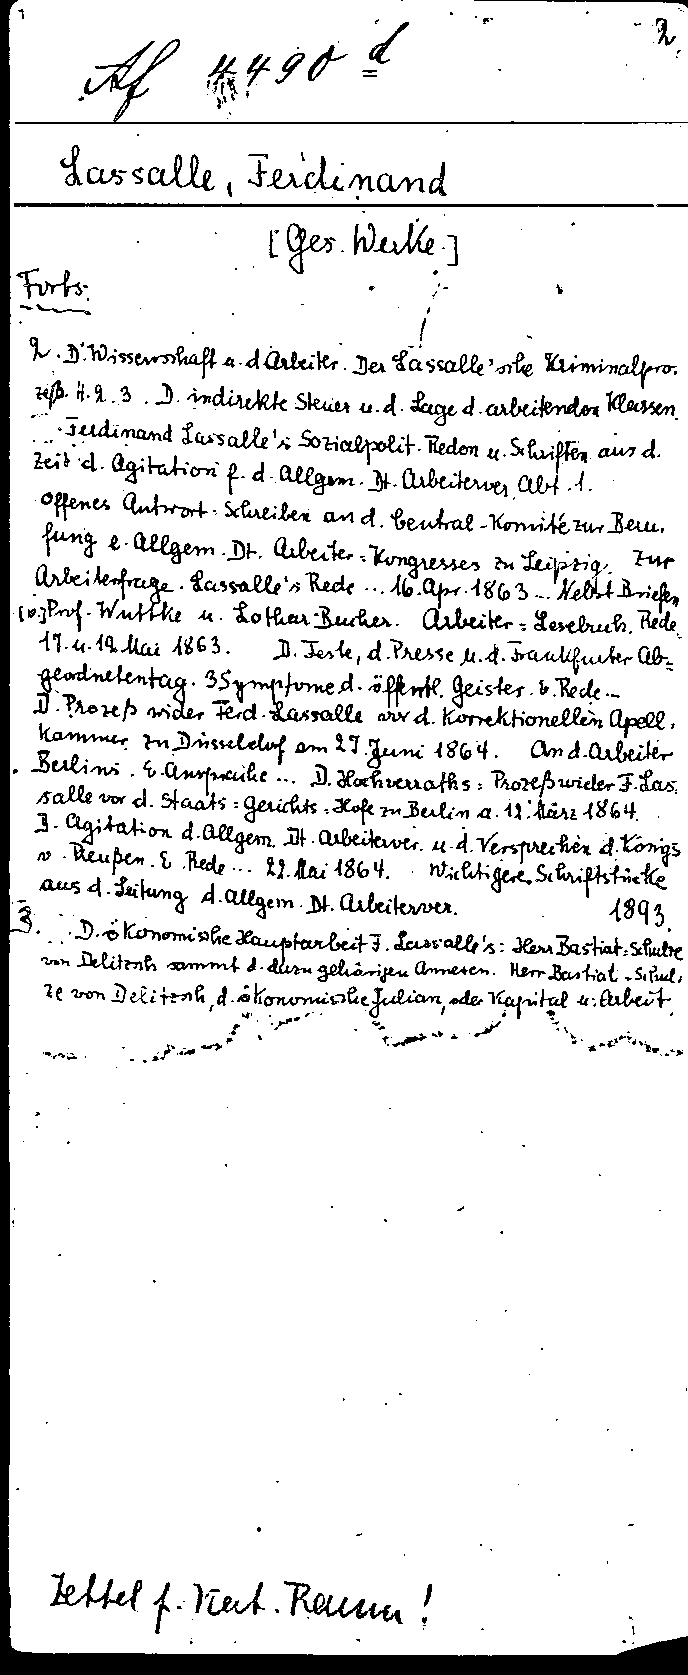 2.
Af 4490 d
Lassalle, Ferdinand
[Ges. Werke.]
Forts.
2. D. Wissenschaft u. d. Arbeiter. Der Lassalle'sche Kriminalpro-
zeß. H. 2. 3. D. indirekte Steuer u. d. Lage d. arbeitenden Klassen.
Ferdinand Lassalle's Sozialpolit. Reden u. Schriften aus d.
Zeit d. Agitation f. d. Allgem. Dt. Arbeiterver. Abt. 1.
Offenes Antwort-Schreiben an d. Central-Komité zur Beru-
fung e. Allgem. Dt. Arbeiter-Kongresses zu Leipzig. Zur
Arbeiterfrage. Lassalle's Rede ... 16. Apr. 1863 ... Nebst Briefen
[v.] Prof. Wuttke u. Lothar Bucher. Arbeiter-Lesebuch. Rede
17. u. 19. Mai 1863. D. Feste, d. Presse u. d. Frankfurter Ab-
geordnetentag. 3 Symptome d. öffentl. Geister. E. Rede ...
D. Prozeß wider Ferd. Lassalle vor d. Korrektionellen Apell-
kammer zu Düsseldorf am 27. Juni 1864. An d. Arbeiter
Berlins. E. Ansprache ... D. Hochverraths-Prozeß wieder F. Las-
salle vor d. Staats-Gerichts-Hofe zu Berlin a. 12. März 1864.
D. Agitation d. Allgem. Dt. Arbeiterver. u. d. Versprechen d. Königs
v. Preußen. E. Rede ... 22. Mai 1864. Wichtigere Schriftstücke
aus d. Leitung d. Allgem. Dt. Arbeiterver. 1893.
3. D. ökonomische Hauptarbeit F. Lassalle's: Herr Bastiat-Schulze
von Delitzsch sammt d. dazu gehörigen Annexen. Herr Bastiat-Schul-
ze von Delitzsch, d. ökonomische Julian, oder Kapital u. Arbeit.
Zettel f. Kat. Raum!